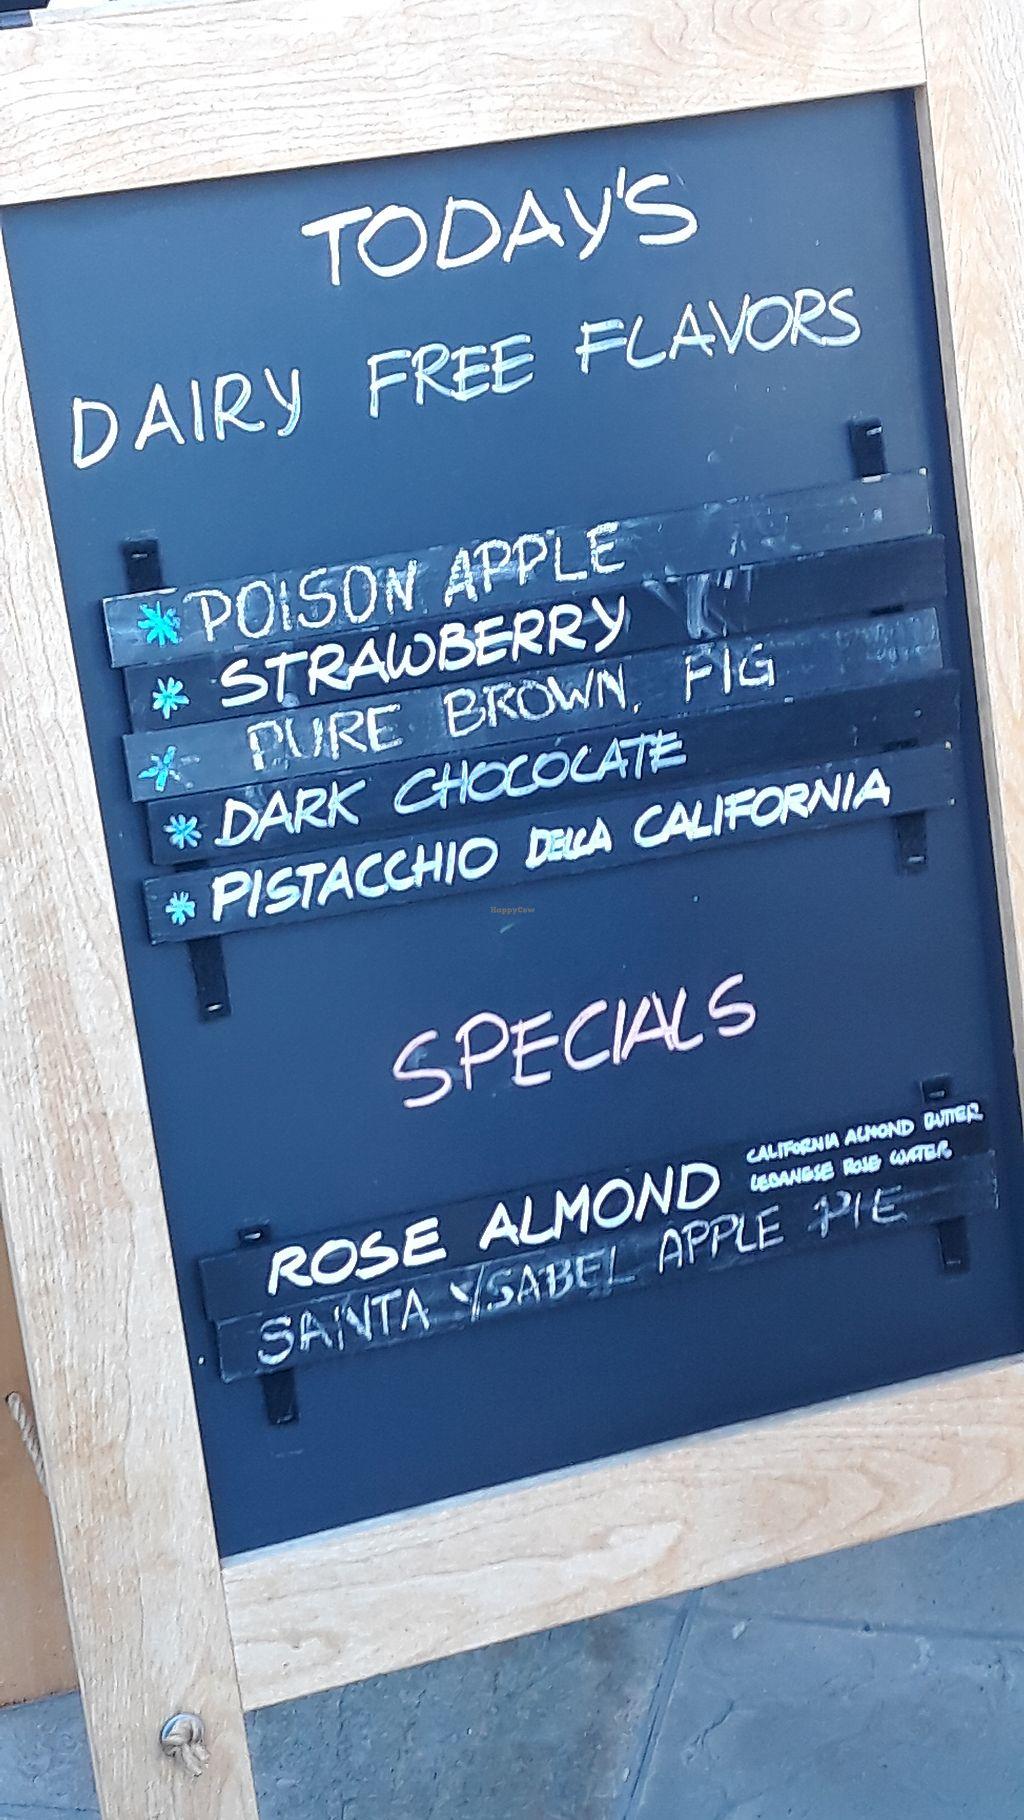 TODAY'S
DAIRY FREE FLAVORS
* POISON APPLE
* STRAWBERRY
* PURE BROWN. FIG
* DARK CHOCOLATE
* PISTACCHIO DELLA CALIFORNIA
HappyCow
SPECIALS
ROSE ALMOND CALIFORNIA ALMOND BUTTER
LEBANESE ROSE WATER
SANTA YSABEL APPLE PIE